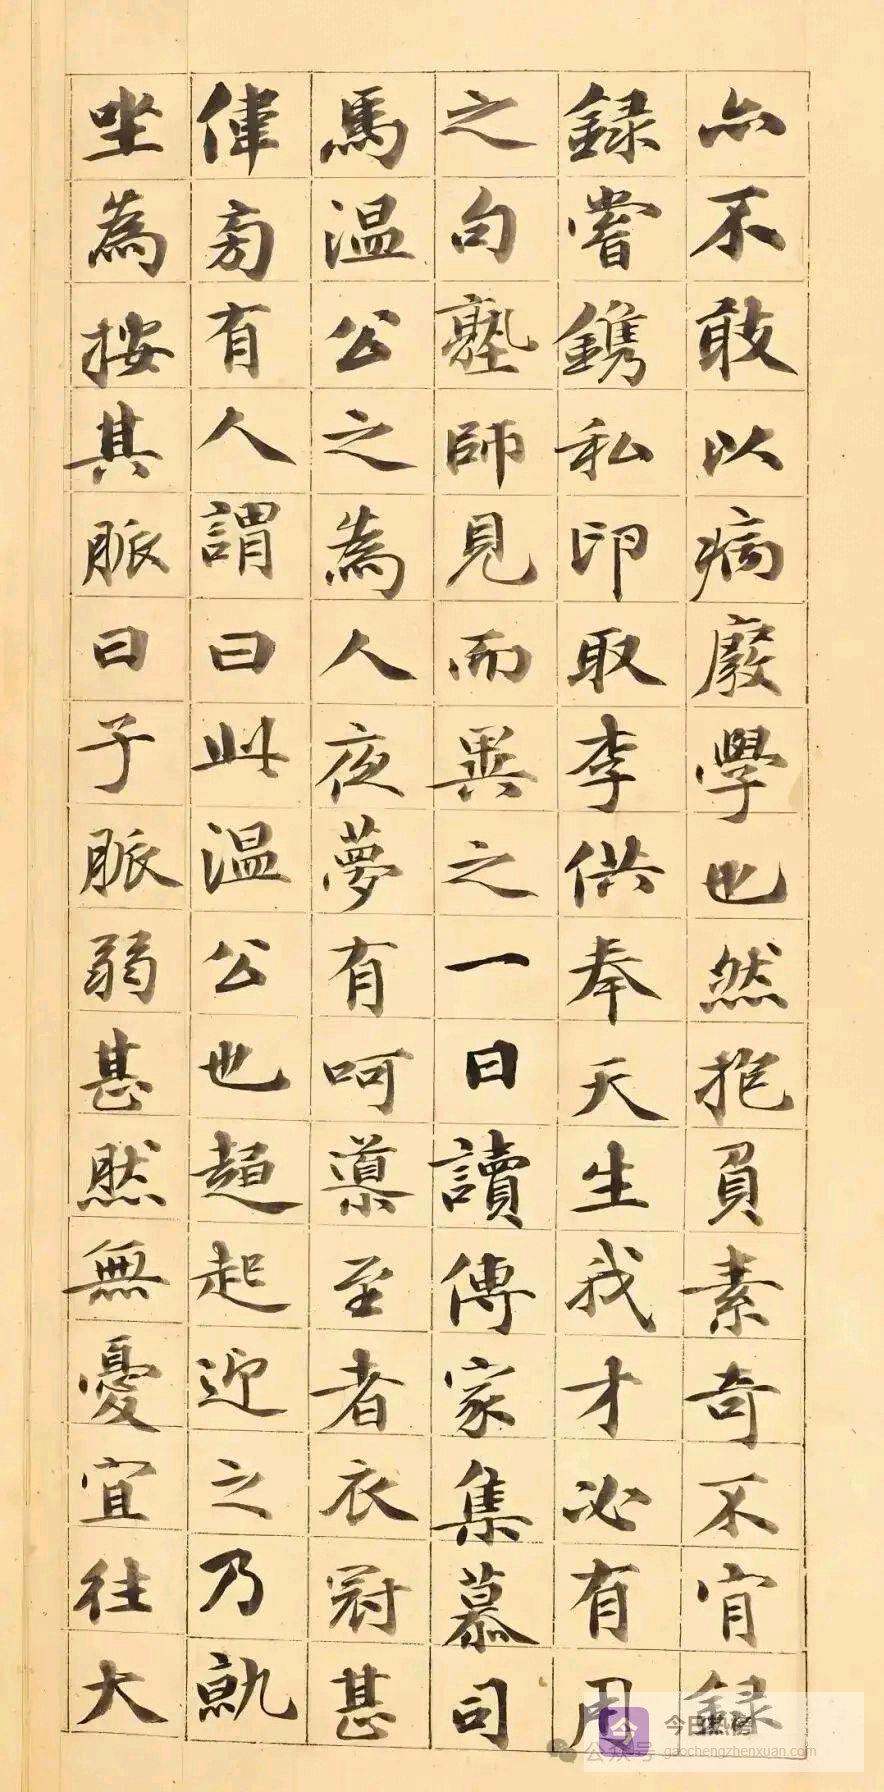 亦不敢以病廢學也然抱負素奇不肎録
録嘗鐫私印取李供奉天生我才必有用
之句塾師見而異之一日讀傳家集慕司
馬温公之為人夜夢有呵導至者衣冠甚
偉旁有人謂曰此温公也趨起迎之乃就
坐為按其脈曰子脈弱甚然無憂宜往大
今日热榜
公众号 gaochengzhenxuan.com